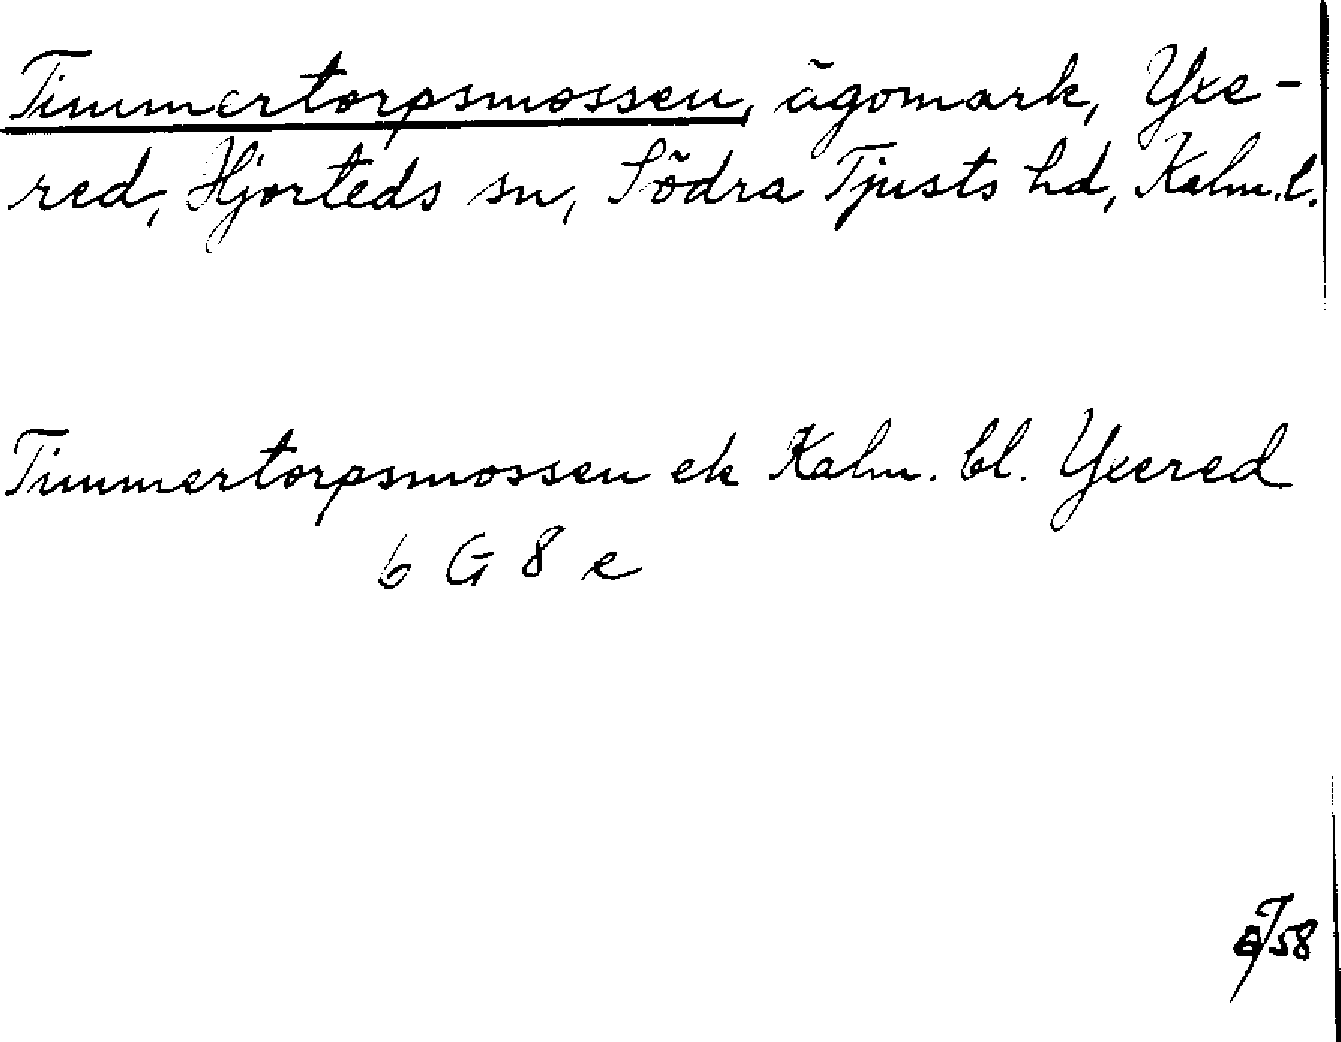 Timmertorpsmossen, ägomark, Yxe-
red, Hjorteds sn, Södra Tjusts hd, Kalm. l.
Timmertorpsmossen ek Kalm. bl. Yxered
6 G 8 e
58